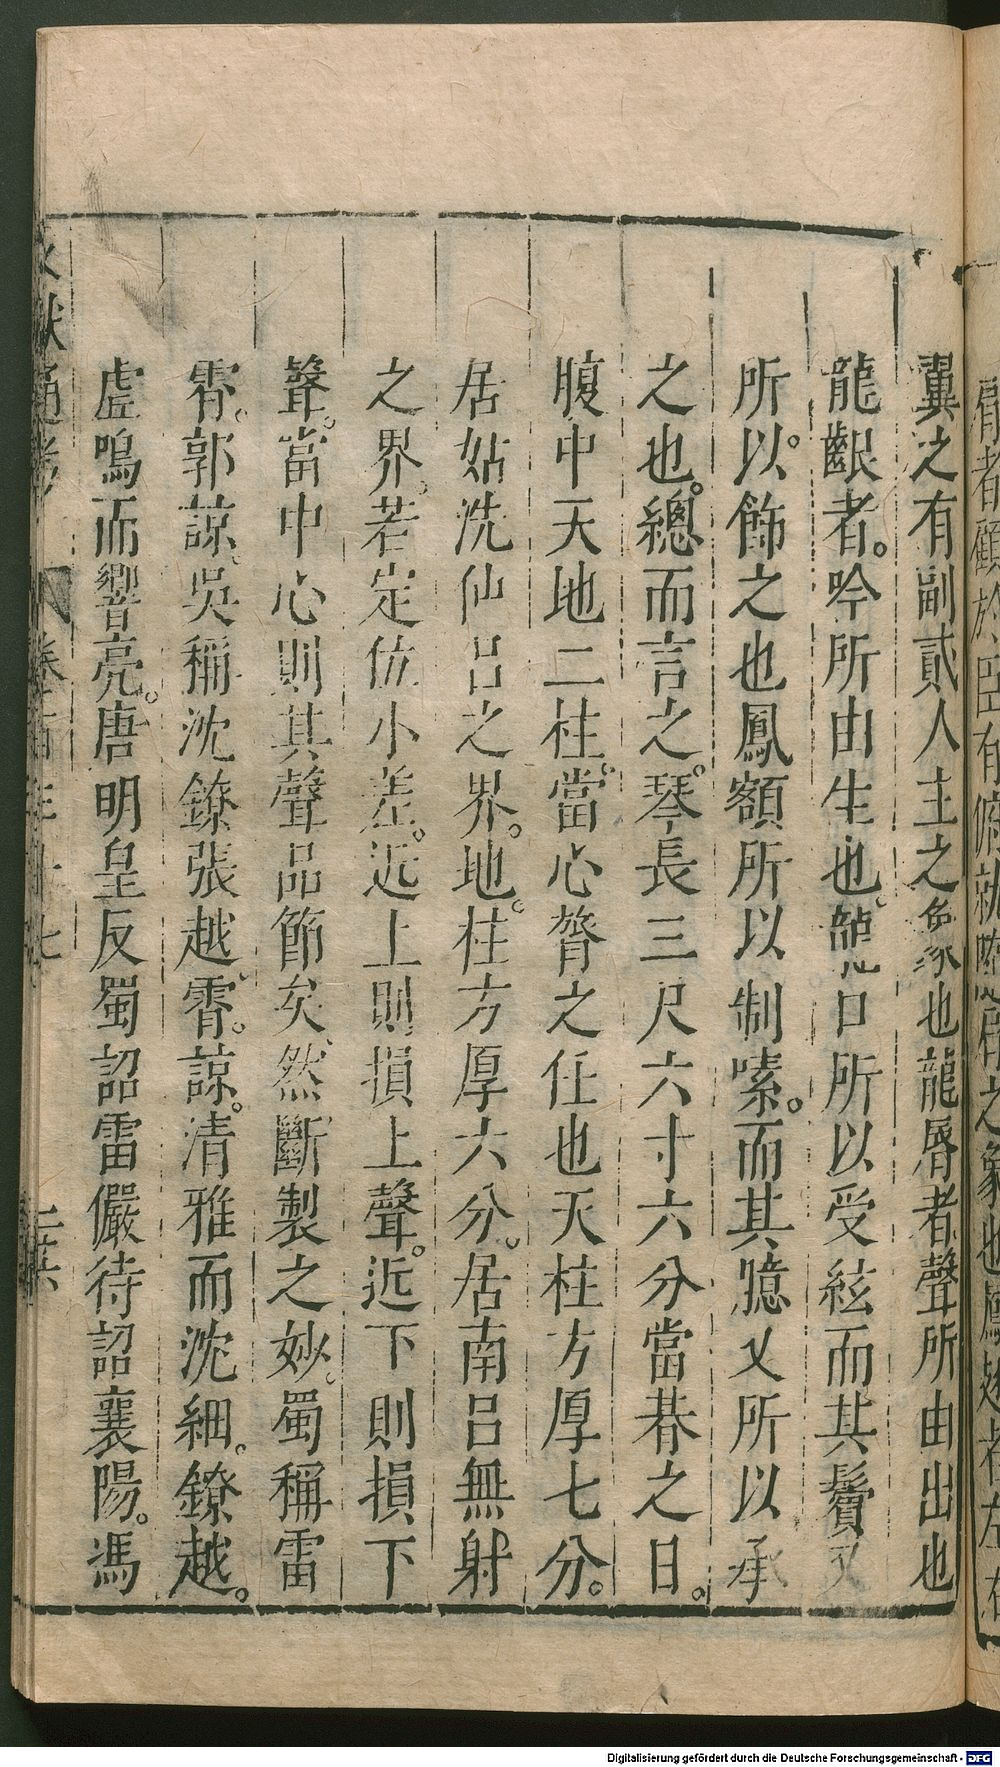 翼之有副貳人主之象也龍脣者聲所由出也
龍齦者。吟所由生也。龍口所以受絃而其鬢又
所以。飾之也鳳額所以制嗉。而其臆又所以承
之也。總而言之。琴長三尺六寸六分當朞之日。
腹中天地二柱。當心膂之任也天柱方厚七分。
居姑洗仙呂之界。地。柱方厚六分。居南呂無射
之界。若定位小差。近上則損上聲。近下則損下
聲。當中心則其聲品節矣、然斷製之妙。蜀稱雷
霄。郭諒、吳稱沈鐐張越、霄。諒。清雅而沈細。鐐越。
虛鳴而響亮。唐明皇反蜀詔雷儼待詔襄陽。馮
文獻通考 卷百三十七 二十六
骨者顧於臣有俯就之象也鳳翅者左右
Digitalisierung gefördert durch die Deutsche Forschungsgemeinschaft - DFG